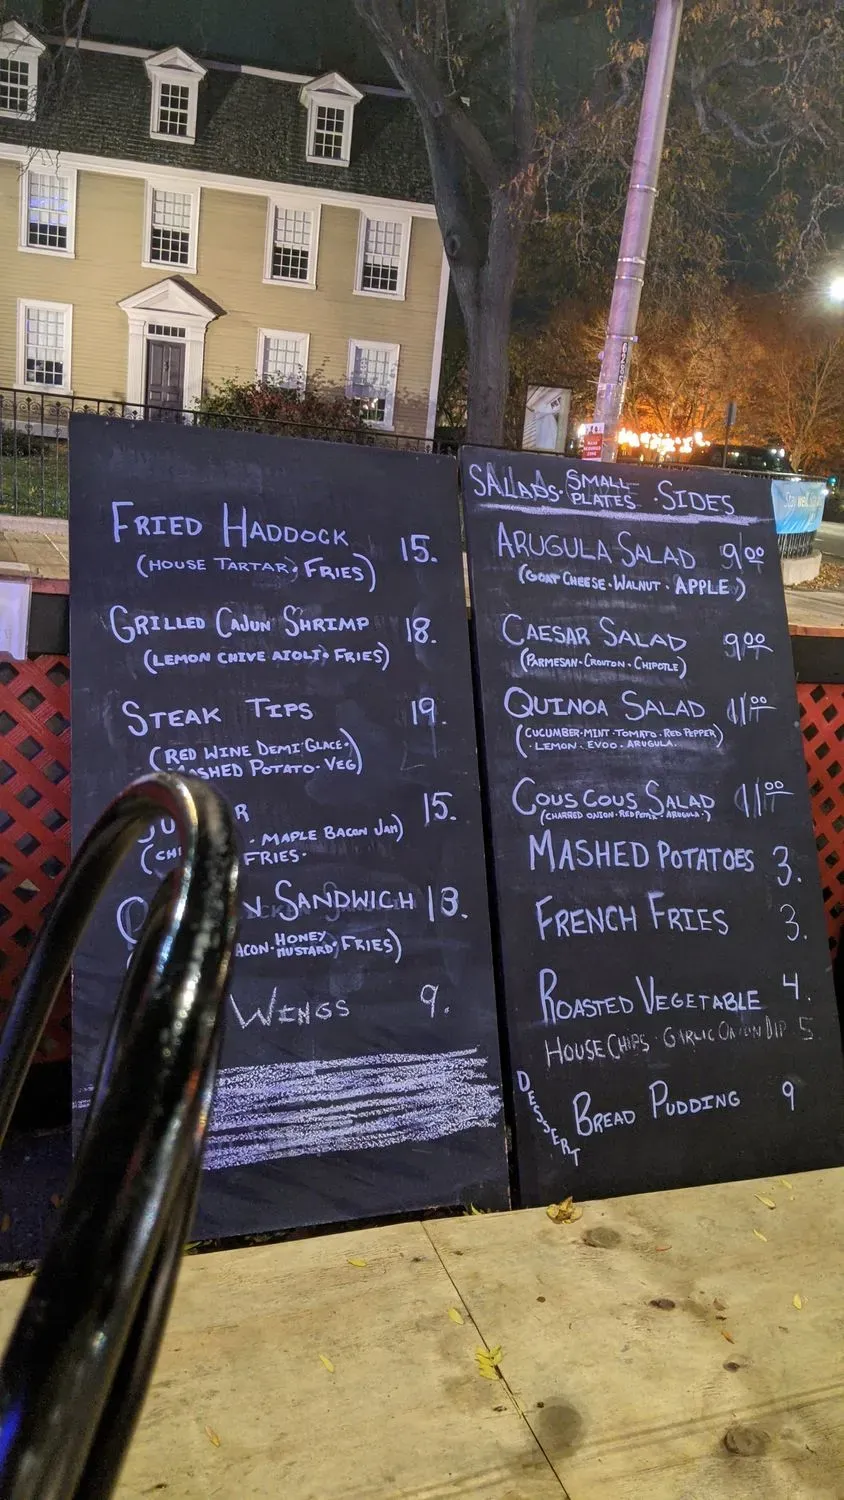 FRIED HADDOCK 15.
(HOUSE TARTAR · FRIES)
GRILLED CAJUN SHRIMP 18.
(LEMON CHIVE AIOLI · FRIES)
STEAK TIPS 19.
(RED WINE DEMI GLACE ·
MASHED POTATO · VEG)
15.
· MAPLE BACON JAM)
FRIES ·
SANDWICH 13.
HONEY
MUSTARD · FRIES)
WINGS 9.
SALADS · SMALL PLATES · SIDES
ARUGULA SALAD 9.00
(GOAT CHEESE · WALNUT · APPLE)
CAESAR SALAD 9.00
(PARMESAN · CROUTON · CHIPOTLE)
QUINOA SALAD 11.00
(CUCUMBER · MINT · TOMATO · RED PEPPER
· LEMON · EVOO · ARUGULA ·)
COUS COUS SALAD 11.00
(CHARRED ONION · RED PEPPER · ARUGULA ·)
MASHED POTATOES 3.
FRENCH FRIES 3.
ROASTED VEGETABLE 4.
HOUSE CHIPS GARLIC ONION DIP 5
DESSERT
BREAD PUDDING 9